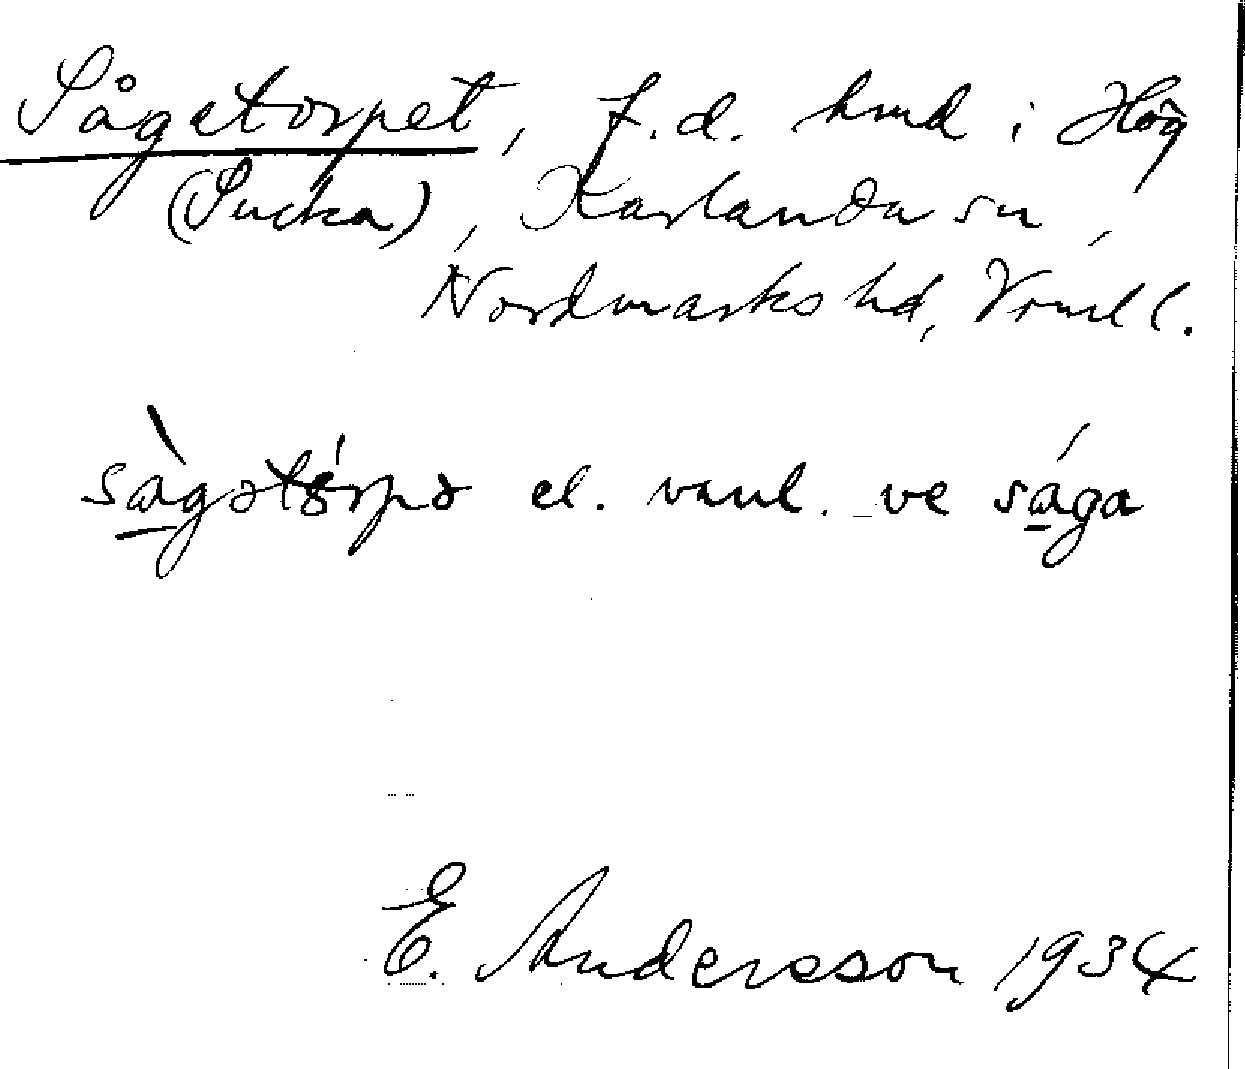 Sågetorpet, f.d. hmd i Hög
(Sucka), Karlanda sn,
Nordmarks hd, Vrml l.
sàgətórpə el. vanl. ve sága
E. Andersson 1934